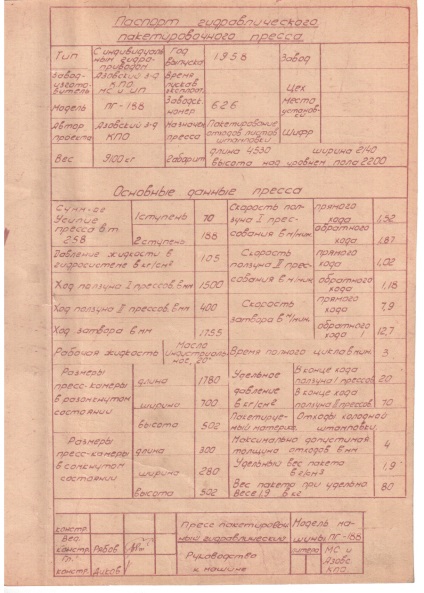 Паспорт гидравлического
пакетировочного пресса.
Тип
С индивидуаль
ным гидро-
приводом
Год
выпуска
1958
Завод
Завод-
изгото-
витель
Азовский з-д
КПО
МС и ИП
Время
пуска в
эксплоат.
Цех
Модель
ПГ-188
Заводск.
номер
626
Место
установ-
ки
Автор
проекта
Азовский з-д
КПО
Назначен.
пресса
Пакетирование
отходов листов.
штамповки
Шифр
Вес
9100кг
Габарит
длина 4530 ширина 2140
высота над уровнем пола 2200
Основные данные пресса
Усилие
пресса в т.
258
1 ступень
70
2 ступень
188
Давление жидкости в
гидросистеме в кг/см²
105
Ход ползуна I прессов. в мм
1500
Ход ползуна II прессов. в мм
400
Ход затвора в мм
1755
Рабочая жидкость
Масло
индустриаль-
ное, 20
Размеры
пресс-камеры
в разомкнутом
состоянии
длина
1780
ширина
700
высота
502
Размеры
пресс-камеры
в сомкнутом
состоянии
длина
300
ширина
280
высота
502
Скорость пол-
зуна I прес-
сования в м/мин.
прямого
хода
1,52
обратного
хода
1,87
Скорость
ползуна II прес-
сования в м/мин.
прямого
хода
1,02
обратного
хода
1,18
Скорость
затвора в м/мин.
прямого
хода
7,9
обратного
хода
12,7
Время полного цикла в мин.
3
Удельное
давление
в кг/см²
В конце хода
ползуна I прессов.
20
В конце хода
ползуна II прессов.
70
Пакетируе-
мый материал.
Отходы холодной
штамповки
Максимально допустимая
толщина отходов в мм
4
Удельный вес пакета
в г/см³
1,9
Вес пакета при удельно
весе 1,9 в кг
80
констр.
Вед.
констр.
Рябов
Гр.
констр.
Диков
Пресс пакетировоч
ный гидравлический
Руководство
к машине
Модель ма-
шины ПГ-188
литера
МС и
Азовс.
КПО